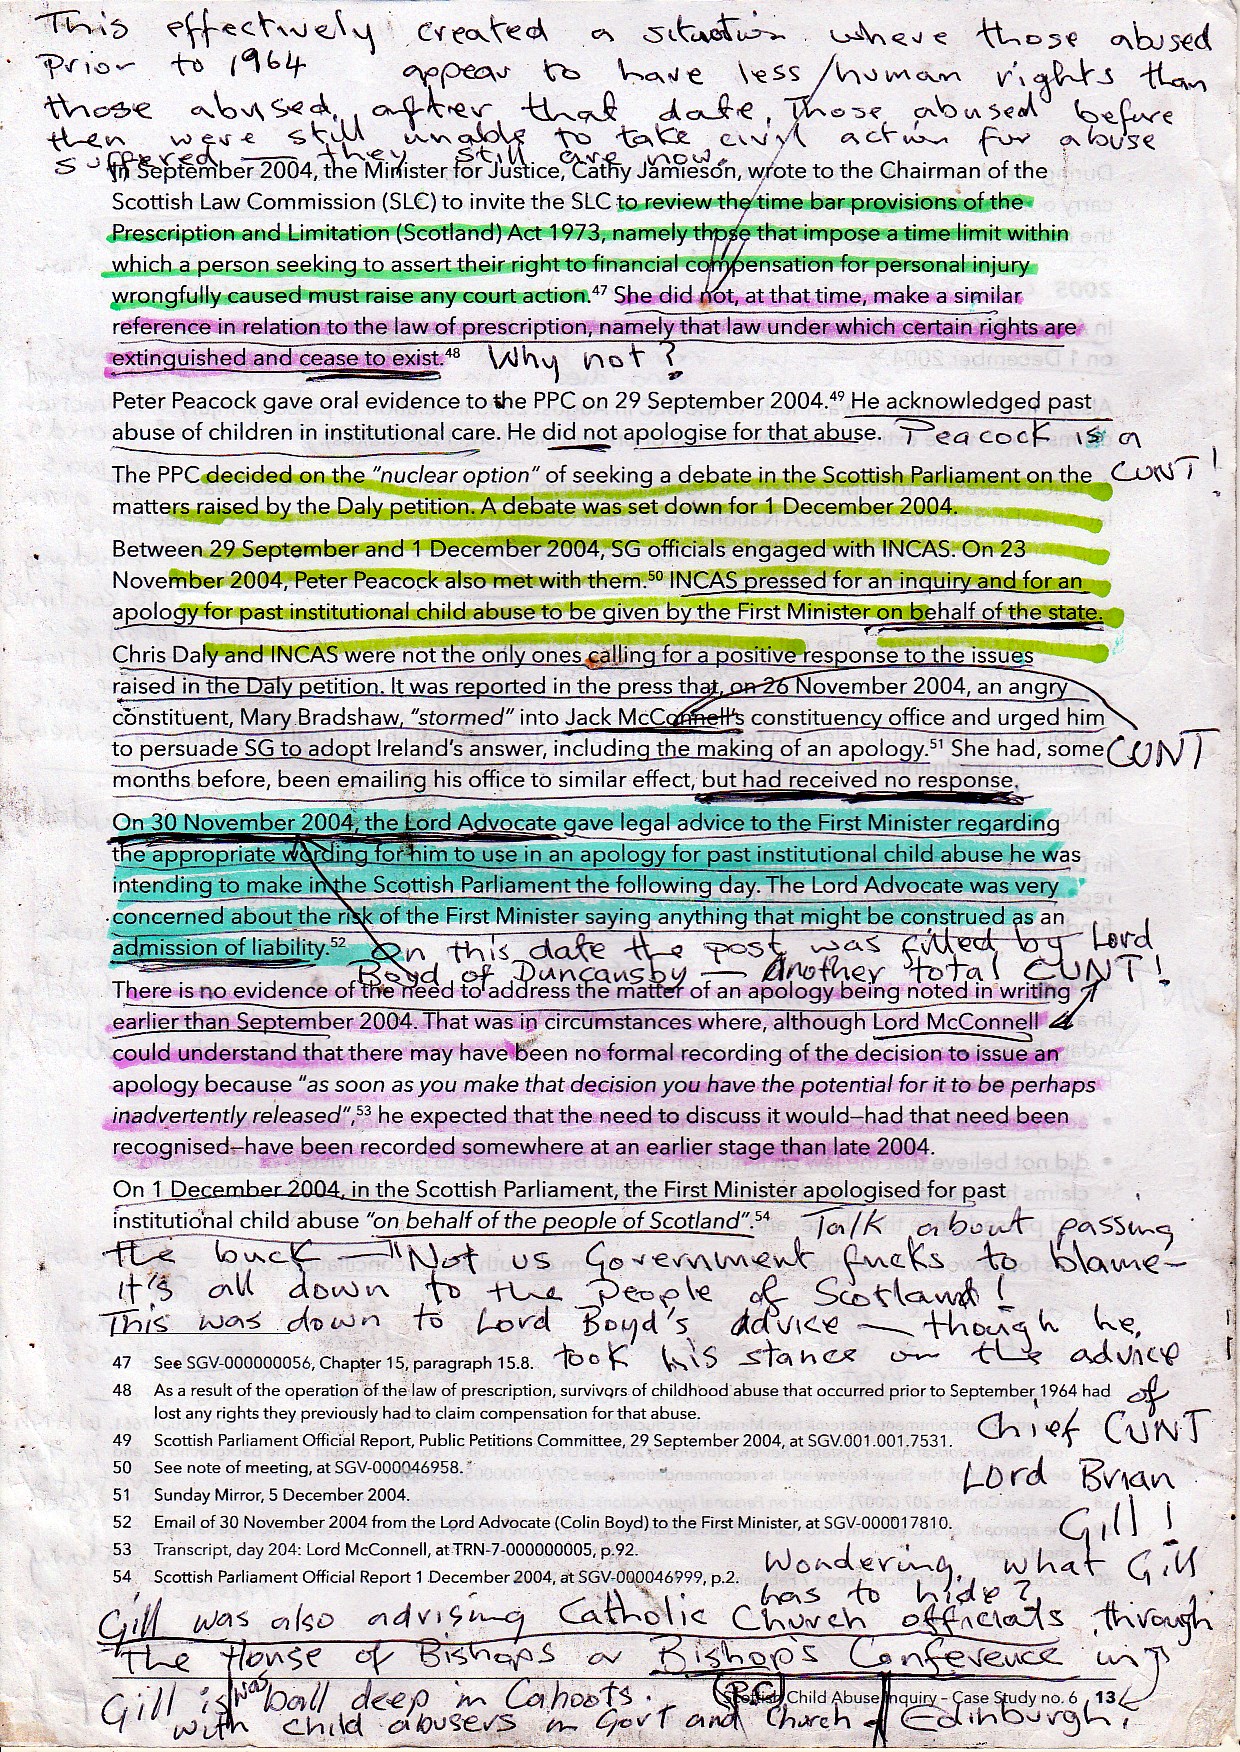 This effectively created a situation where those abused
Prior to 1964 appear to have less human rights than
those abused after that date. Those abused before
then were still unable to take civil action for abuse
suffered — they still are now.
In September 2004, the Minister for Justice, Cathy Jamieson, wrote to the Chairman of the
Scottish Law Commission (SLC) to invite the SLC to review the time bar provisions of the
Prescription and Limitation (Scotland) Act 1973, namely those that impose a time limit within
which a person seeking to assert their right to financial compensation for personal injury
wrongfully caused must raise any court action.47 She did not, at that time, make a similar
reference in relation to the law of prescription, namely that law under which certain rights are
extinguished and cease to exist.48 Why not?
Peter Peacock gave oral evidence to the PPC on 29 September 2004.49 He acknowledged past
abuse of children in institutional care. He did not apologise for that abuse. Peacock is a
CUNT!
The PPC decided on the "nuclear option" of seeking a debate in the Scottish Parliament on the
matters raised by the Daly petition. A debate was set down for 1 December 2004.
Between 29 September and 1 December 2004, SG officials engaged with INCAS. On 23
November 2004, Peter Peacock also met with them.50 INCAS pressed for an inquiry and for an
apology for past institutional child abuse to be given by the First Minister on behalf of the state.
Chris Daly and INCAS were not the only ones calling for a positive response to the issues
raised in the Daly petition. It was reported in the press that, on 26 November 2004, an angry
constituent, Mary Bradshaw, "stormed" into Jack McConnell's constituency office and urged him
to persuade SG to adopt Ireland's answer, including the making of an apology.51 She had, some
CUNT
months before, been emailing his office to similar effect, but had received no response.
On 30 November 2004, the Lord Advocate gave legal advice to the First Minister regarding
the appropriate wording for him to use in an apology for past institutional child abuse he was
intending to make in the Scottish Parliament the following day. The Lord Advocate was very
concerned about the risk of the First Minister saying anything that might be construed as an
admission of liability.52 On this date the post was filled by Lord
Boyd of Duncansby — another total CUNT!
There is no evidence of the need to address the matter of an apology being noted in writing
earlier than September 2004. That was in circumstances where, although Lord McConnell
could understand that there may have been no formal recording of the decision to issue an
apology because "as soon as you make that decision you have the potential for it to be perhaps
inadvertently released",53 he expected that the need to discuss it would–had that need been
recognised–have been recorded somewhere at an earlier stage than late 2004.
On 1 December 2004, in the Scottish Parliament, the First Minister apologised for past
institutional child abuse "on behalf of the people of Scotland".54 Talk about passing
the buck — "Not us Government fucks to blame—
it's all down to the People of Scotland!
This was down to Lord Boyd's advice — though he
took his stance on the advice
of
Chief CUNT
Lord Brian
Gill!
47 See SGV-000000056, Chapter 15, paragraph 15.8.
48 As a result of the operation of the law of prescription, survivors of childhood abuse that occurred prior to September 1964 had
lost any rights they previously had to claim compensation for that abuse.
49 Scottish Parliament Official Report, Public Petitions Committee, 29 September 2004, at SGV.001.001.7531.
50 See note of meeting, at SGV-000046958.
51 Sunday Mirror, 5 December 2004.
52 Email of 30 November 2004 from the Lord Advocate (Colin Boyd) to the First Minister, at SGV-000017810.
53 Transcript, day 204: Lord McConnell, at TRN-7-000000005, p.92.
54 Scottish Parliament Official Report 1 December 2004, at SGV-000046999, p.2.
Wondering what Gill
has to hide?
Gill was also advising Catholic Church officials through
the House of Bishops or Bishop's Conference in
Edinburgh.
Gill is/was ball deep in Cahoots.
with child abusers in Govt and Church
Scottish Child Abuse Inquiry – Case Study no. 6 13